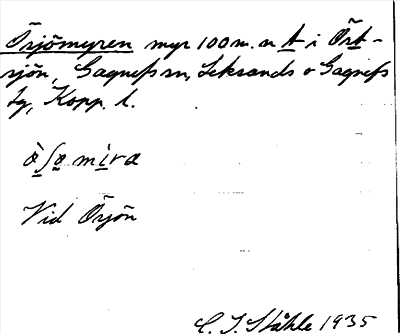 Örjömyren myr 100 m. n t i Ört-
sjön, Gagnefs sn, Leksands o Gagnefs
tg, Kopp. l.
ò̱ʃo̱ mi̱ra
Vid Örjön
C. I. Ståhle 1935